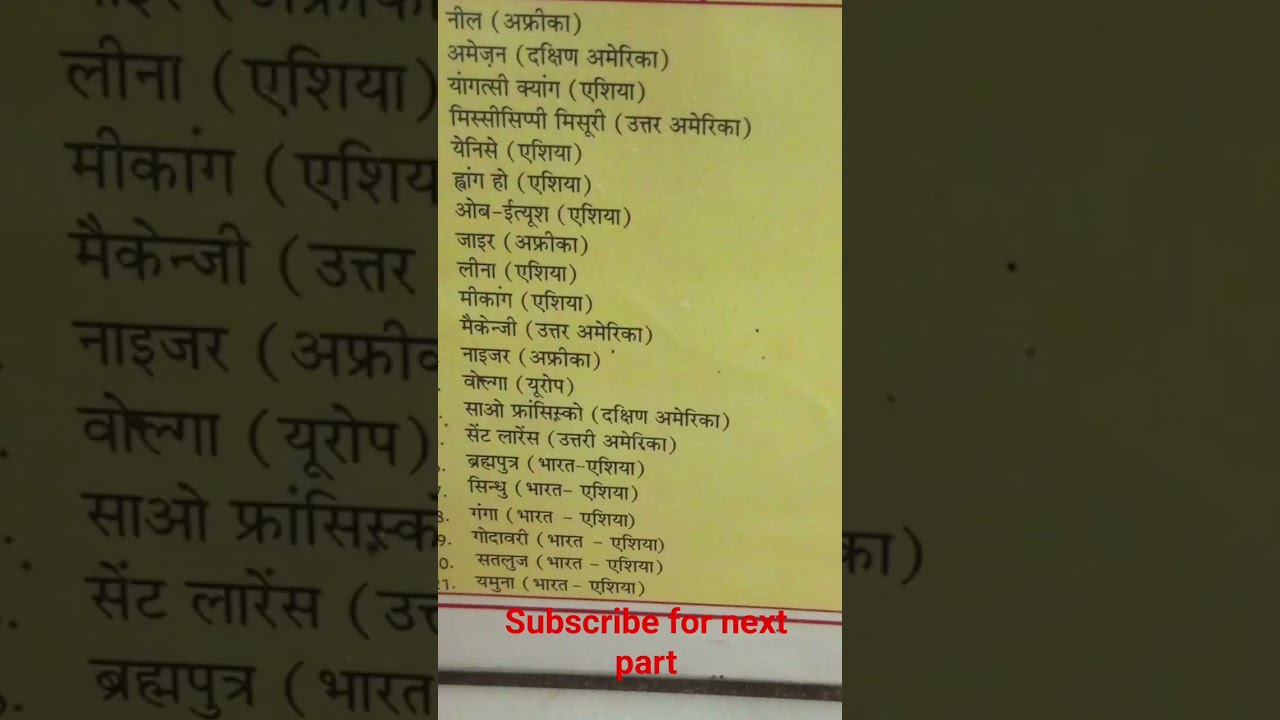 नील (अफ्रीका)
अमेज़न (दक्षिण अमेरिका)
यांगत्सी क्यांग (एशिया)
मिस्सीसिप्पी मिसूरी (उत्तर अमेरिका)
येनिसे (एशिया)
ह्वांग हो (एशिया)
ओब-ईत्यूश (एशिया)
जाइर (अफ्रीका)
लीना (एशिया)
मीकांग (एशिया)
मैकेन्जी (उत्तर अमेरिका)
नाइजर (अफ्रीका)
वोल्गा (यूरोप)
साओ फ्रांसिस्को (दक्षिण अमेरिका)
सेंट लारेंस (उत्तरी अमेरिका)
ब्रह्मपुत्र (भारत-एशिया)
7. सिन्धु (भारत- एशिया)
8. गंगा (भारत - एशिया)
9. गोदावरी (भारत - एशिया)
0. सतलुज (भारत - एशिया)
21. यमुना (भारत - एशिया)
Subscribe for next
part
लीना (एशिया)
मीकांग (एशिय
मैकेन्जी (उत्तर
नाइजर (अफ्रीक
वोल्गा (यूरोप)
साओ फ्रांसिस्को
सेंट लारेंस (उत्त
ब्रह्मपुत्र (भारत
का)